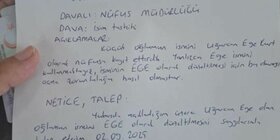 DAVALI: NÜFUS MÜDÜRLÜĞÜ
DAVA: İsim tashihi
AÇIKLAMALAR:
KÜÇÜK oğlumun ismini Uğurcan Ege
olarak nüfusa kayıt ettirdik. Yanlızca Ege ismini
kullanmaktayız, isminin EGE olarak düzeltilmesi için bu
açma zorunluluğu hasıl olmuştur.
NETİCE, TALEP:
Yukarıda açıkladığım üzere Uğurcan Ege olan
oğlumun ismini EGE olarak düzeltilmesini saygılarımla
02.09.2025